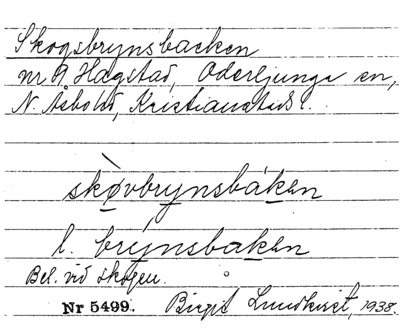 Skogsbrynsbacken
nr 9 Hagstad, Oderljunga sn,
N. Åsbohd, Kristianstads l.
skòvbrynsbáken
l. brýnsbaken
Bel. vid skogen.
Nr 5499. Birgit Lundkvist, 1938.